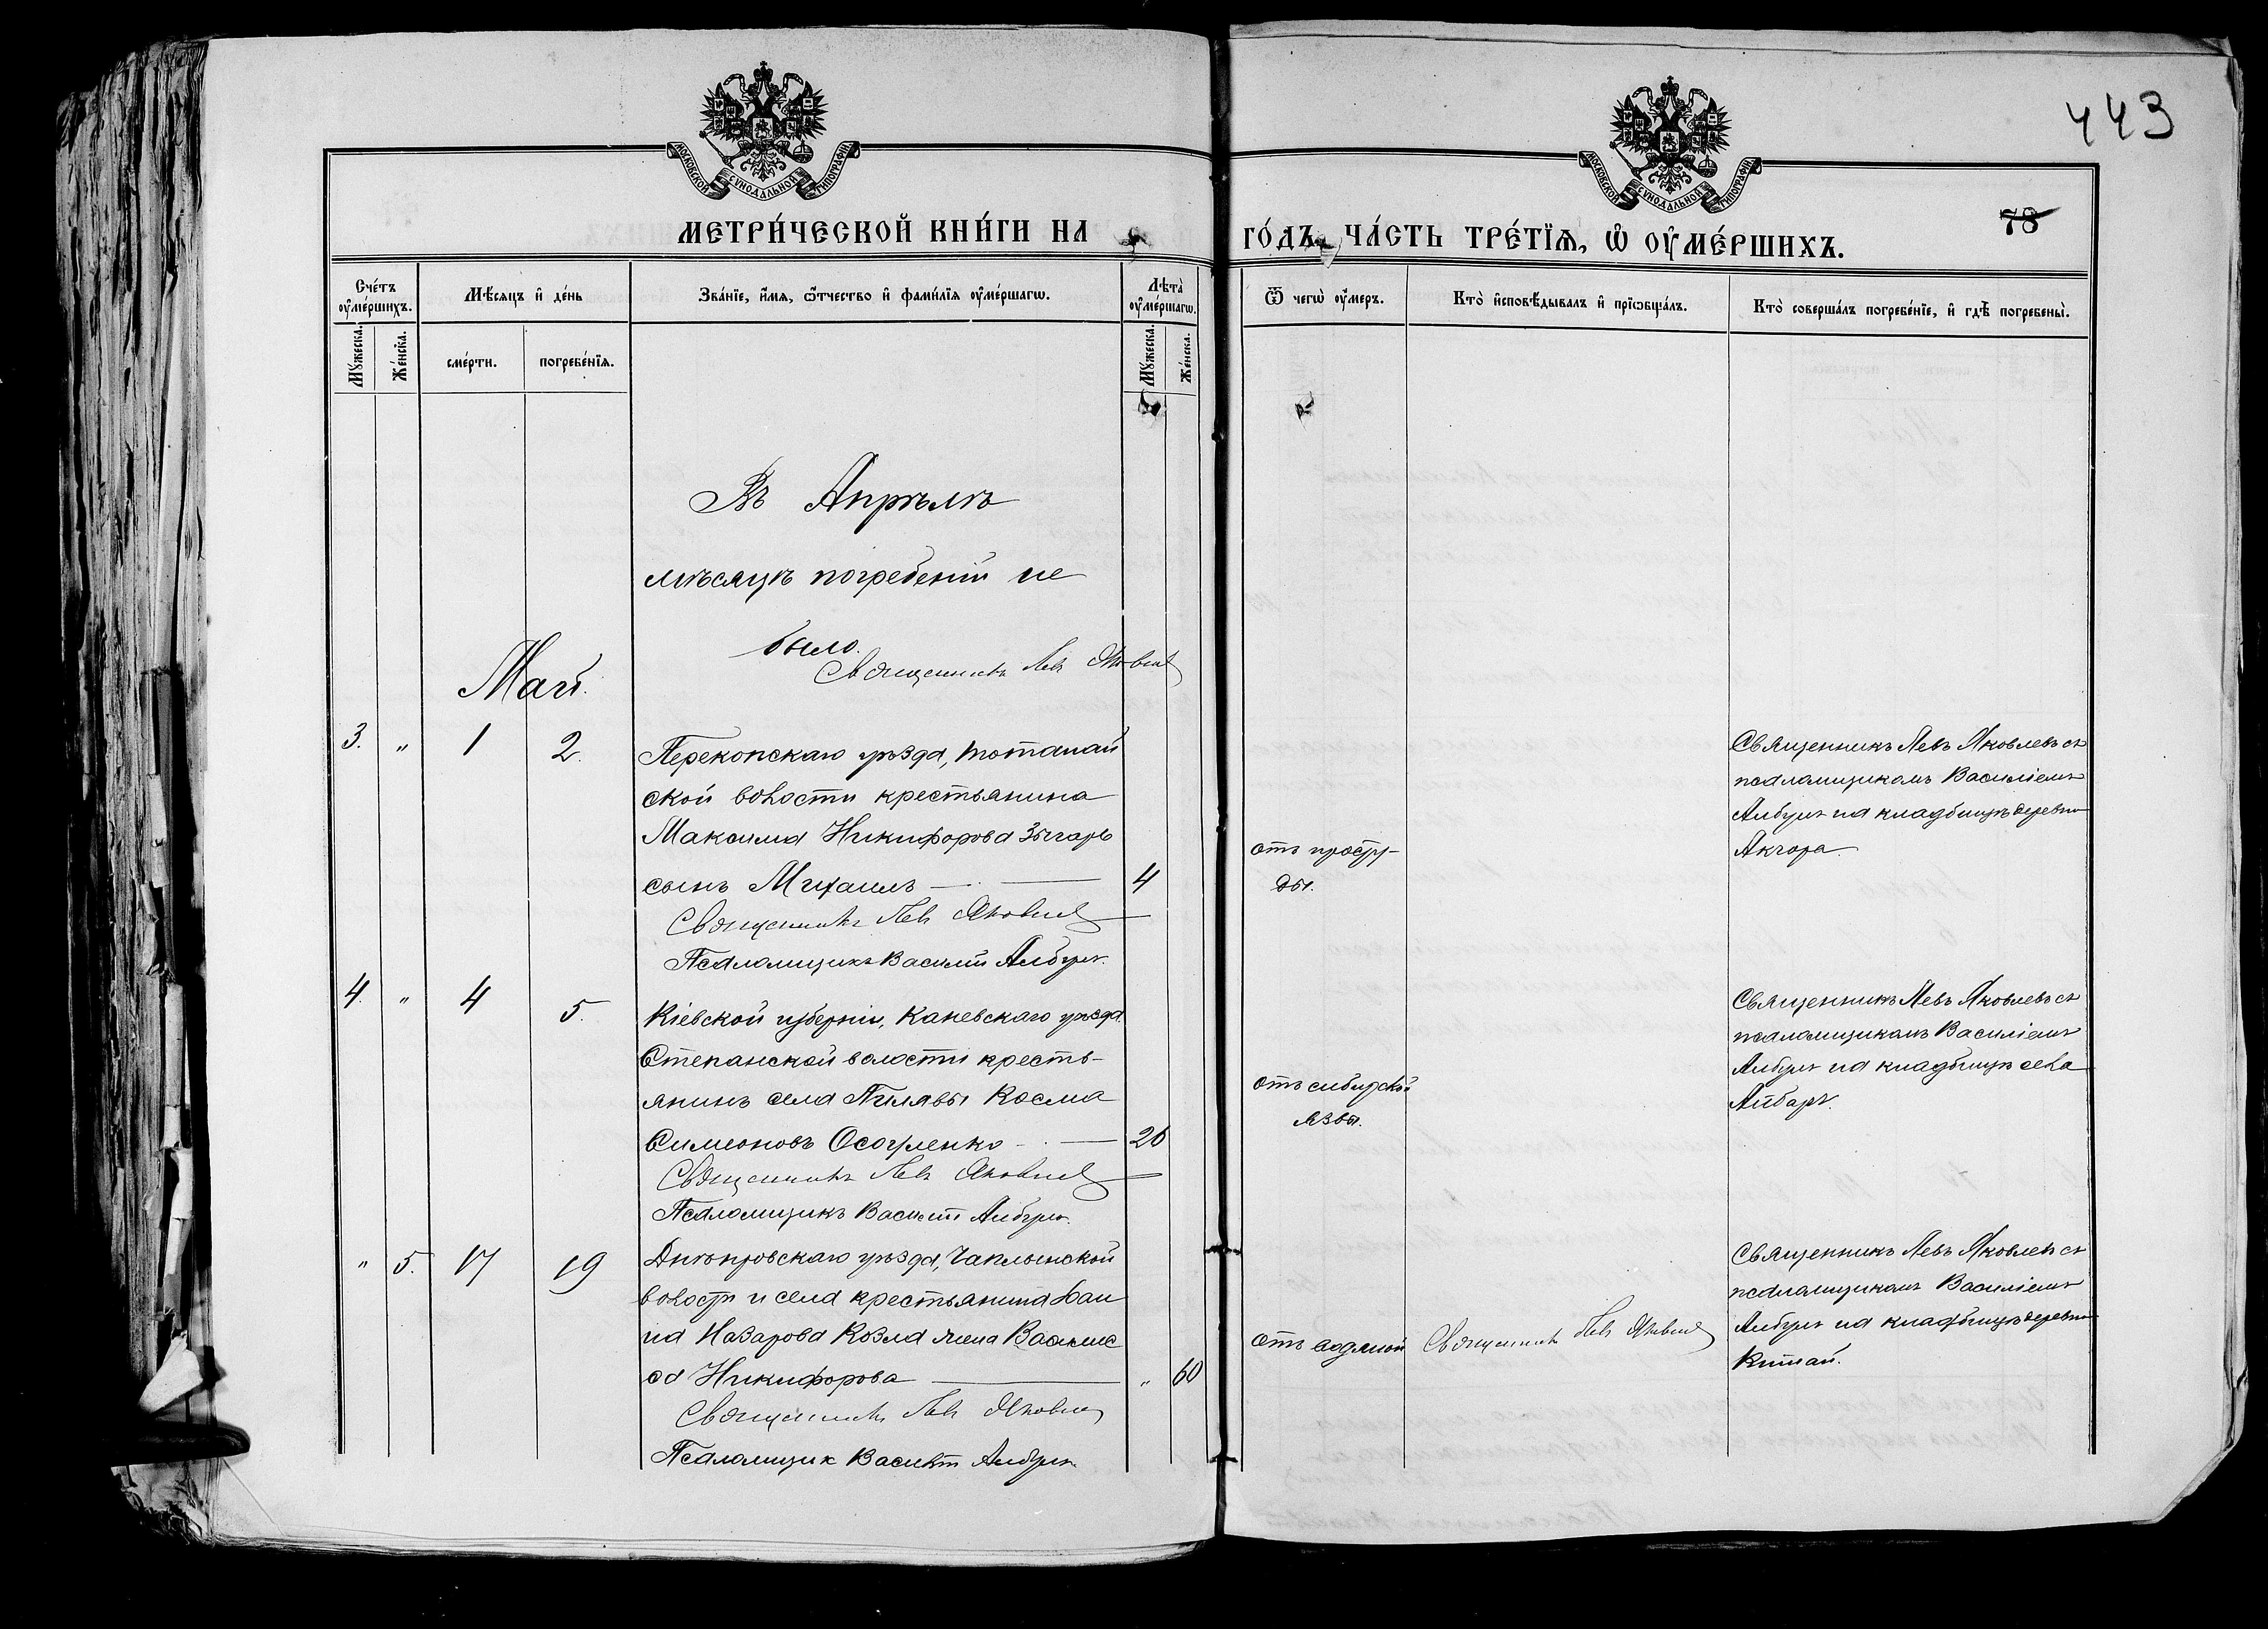 443
МОСКОВСКОЙ СУНОДАЛЬНОЙ ТИПОГРАФІИ
МОСКОВСКОЙ СУНОДАЛЬНОЙ ТИПОГРАФІИ
78
МЕТРИ́ЧЕСКОЙ КНИ́ГИ НА
ГО́ДЪ, ЧА́СТЬ ТРЕ́ТІѦ, Ѡ҆ ОУ҆МЕ́РШИХЪ.
Сче́тъ оу҆ме́ршихъ.
Мꙋжеска.
Же́нска.
Мѣ́сяцъ и҆ де́нь
сме́рти.
погребе́нїѧ.
Зва́нїе, и҆́мѧ, ѻ҆́тчество и҆ фами́лїѧ оу҆ме́ршагѡ.
Лѣта̀ оу҆ме́ршагѡ.
Мꙋжеска.
Же́нска.
Ѿ чегѡ̀ оу҆́меръ.
Кто̀ и҆сповѣ́дывалъ и҆ прїѡбща́лъ.
Кто̀ соверша́лъ погребе́нїе, и҆ гдѣ̀ погребены̀.
Въ Апрѣлѣ
мѣсяцѣ погребеній не
было.
Священникъ Левъ Яковлев
Май.
3. " 1 2.
Перекопскаго уѣзда, тотанай
ской волости крестьянина
Максима Никифорова Зыгарь
сынъ Михаилъ — 4
Священникъ Левъ Яковлев
Псаломщикъ Василій Албул.
отъ просту-
ды.
Священникъ Левъ Яковлевъ съ
псаломщикомъ Василіемъ
Албулъ на кладбищѣ деревни
Акчора.
4. " 4 5.
Кіевской губерніи, Каневскаго уѣзда
Степанской волости кресть-
янинъ села Пилявы Косма
Симеоновъ — 26
Священникъ Левъ Яковлев
Псаломщикъ Василій Албул.
отъ сибирской
язвы.
Священникъ Левъ Яковлевъ съ
псаломщикомъ Василіемъ
Албулъ на кладбищѣ села
Айбаръ.
" 5. 17 19
Днѣпровскаго уѣзда, Чаплынской
волости и села крестьянина Фан
на Назарова Козла жена Василис
са Никифорова — " 60
Священникъ Левъ Яковлев
Псаломщик Василій Албул.
отъ водяной
Священникъ Левъ Яковлев
Священникъ Левъ Яковлевъ съ
псаломщикомъ Василіемъ
Албулъ на кладбищѣ деревни
Китай.